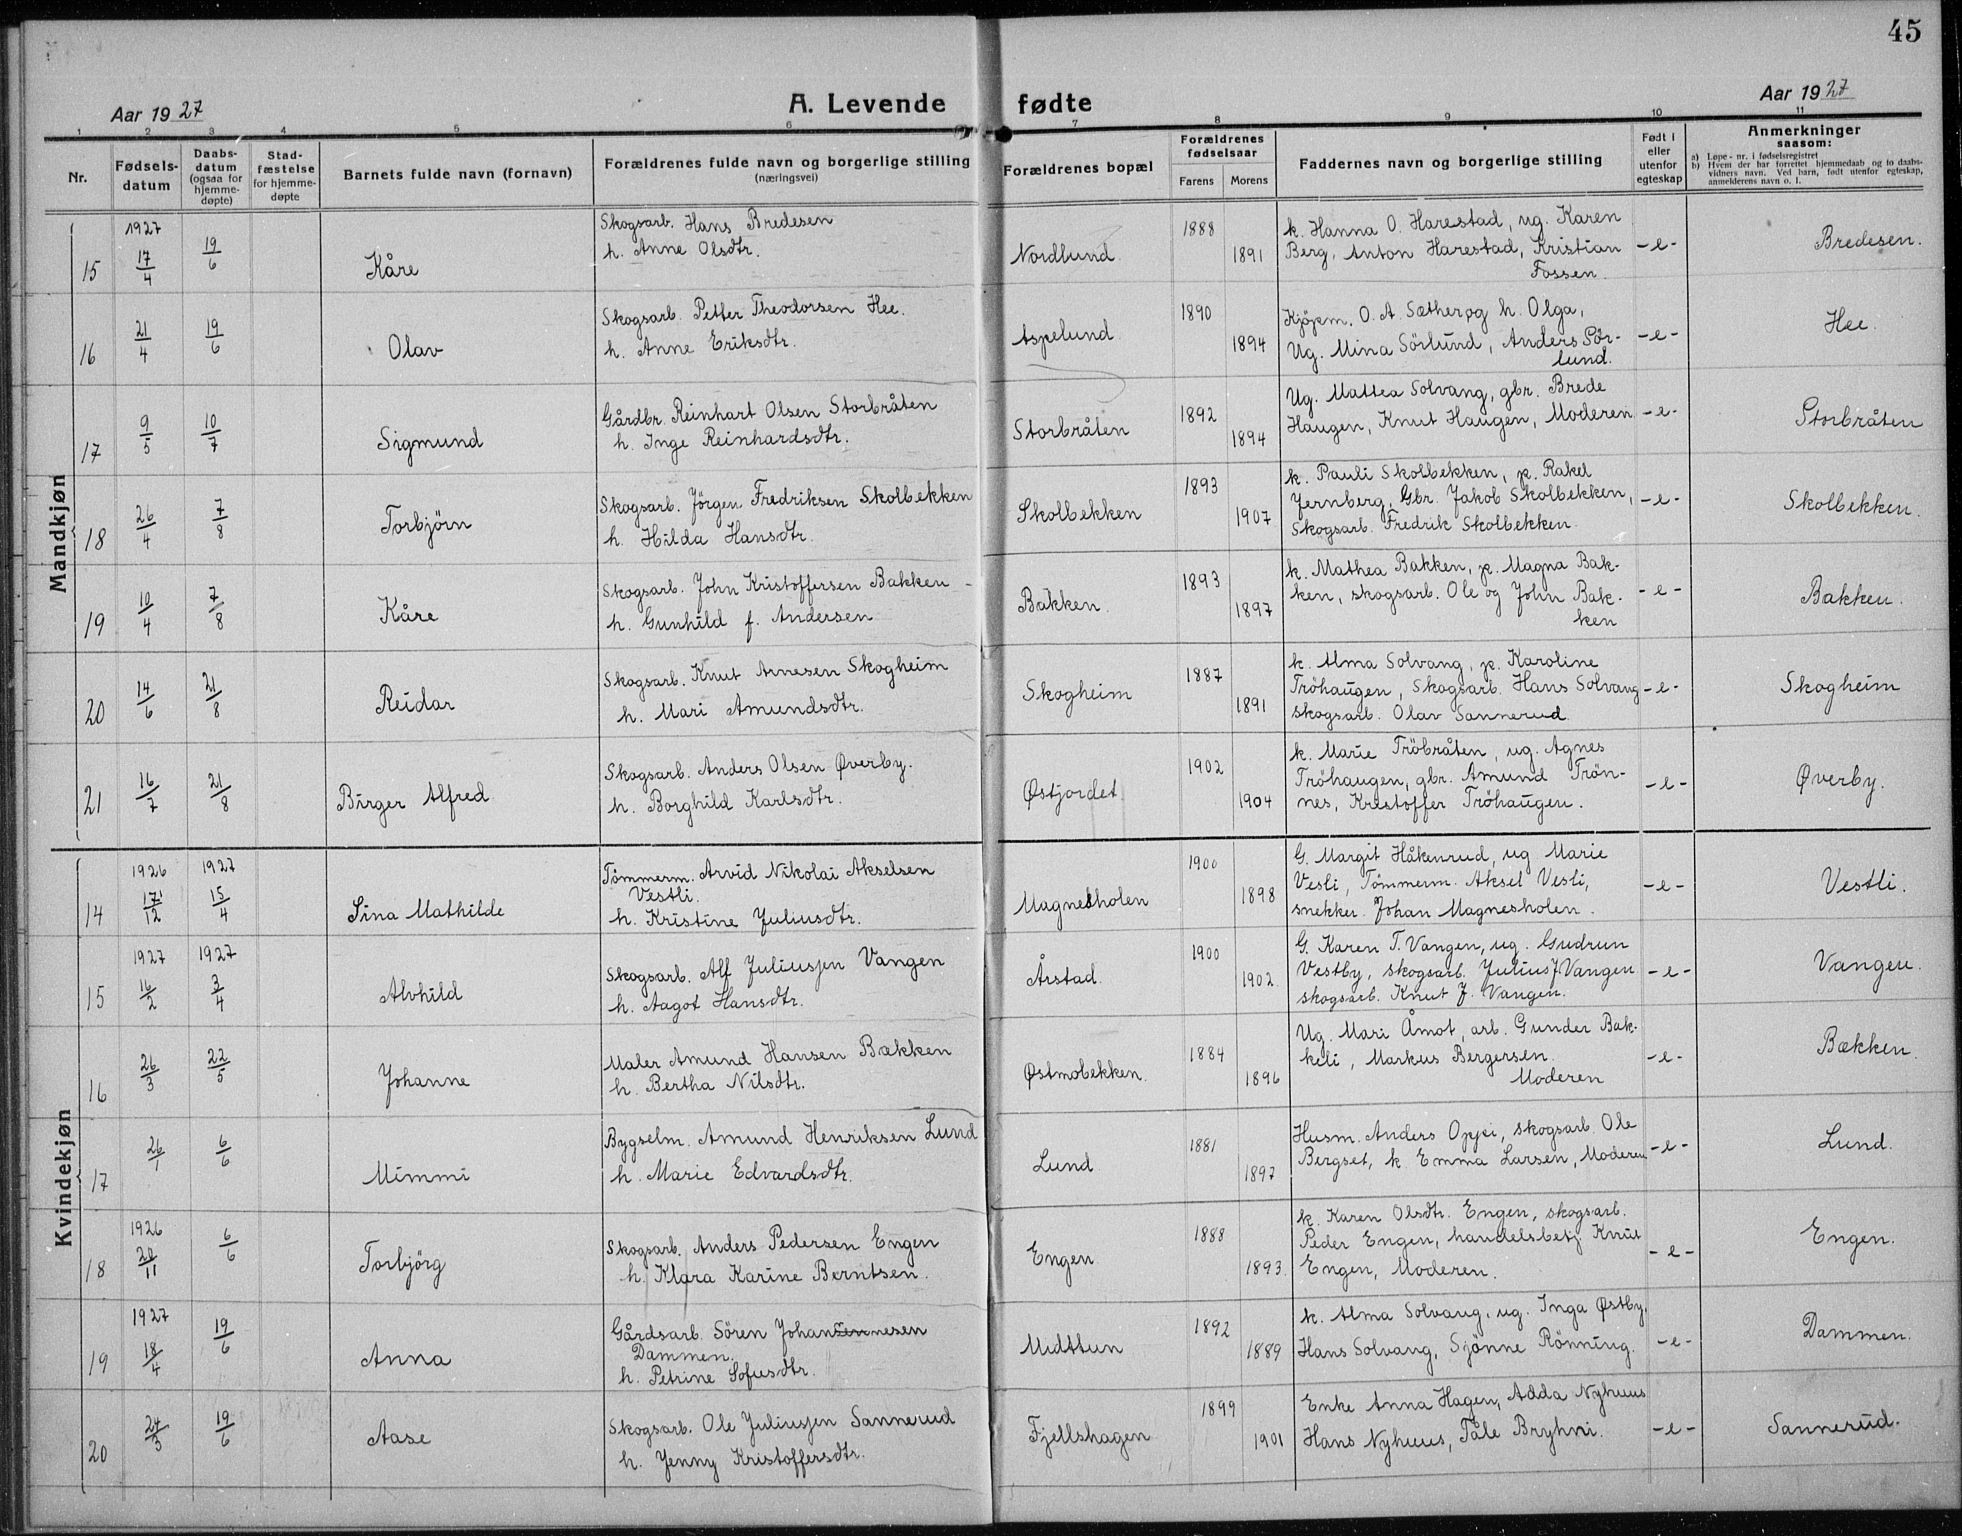 45
Aar 1927
A. Levende fødte
Aar 1927
1 2 3 4 5 6 7 8 9 10 11
Nr.
Fødsels-
datum
Daabs-
datum
(ogsaa for
hjemme-
døpte)
Stad-
fæstelse
for hjemme-
døpte
Barnets fulde navn (fornavn)
Forældrenes fulde navn og borgerlige stilling
(næringsvei)
Forældrenes bopæl
Forældrenes
fødselsaar
Farens Morens
Faddernes navn og borgerlige stilling
Født i
eller
utenfor
egteskap
Anmerkninger
saasom:
a) Løpe-nr. i fødselsregistret
b) Hvem der har forrettet hjemmedaab og to daabs-
vidners navn. Ved barn, født utenfor egteskap,
anmelderens navn o. l.
Mandkjøn
15 1927 17/4 19/6 Kåre
Skogsarb. Hans Bredesen
h. Anne Olsdtr.
Nordlund 1888 1891
k. Hanna O. Harestad, ug. Karen
Berg, Anton Harestad, Kristian
Fossen.
-e- Bredesen.
16 21/4 19/6 Olav
Skogsarb. Petter Theodorsen Hee.
h. Anne Eriksdtr.
Aspelund 1890 1894
Kjöpm. O. A. Sætherog h. Olga,
Ug. Mina Sörlund, Anders Sör-
lund.
-e- Hee.
17 9/5 10/7 Sigmund
Gårdbr. Reinhart Olsen Storbråten
h. Inge Reinhardsdtr.
Storbråten 1892 1894
Ug. Mattea Solvang, gbr. Brede
Haugen, Knut Haugen, Moderen
-e- Storbråten
18 26/4 7/8 Torbjörn
Skogsarb. Jörgen Fredriksen Skolbekken
h. Hilda Hansdtr.
Skolbekken 1893 1907
k. Pauli Skolbekken, p. Rakel
Jernberg, Gbr. Jakob Skolbekken,
Skogsarb. Fredrik Skolbekken.
-e- Skolbekken.
19 10/4 7/8 Kåre
Skogsarb. John Kristoffersen Bakken -
h. Gunhild f. Andersen
Bakken. 1893 1897
k. Mathea Bakken, p. Magna Bak-
ken, skogsarb. Ole og John Bak-
ken
-e- Bakken.
20 14/6 21/8 Reidar
Skogsarb. Knut Arnesen Skogheim
h. Mari Amundsdtr.
Skogheim 1887 1891
k. Alma Solvang, p. Karoline
Tröhaugen, Skogsarb. Hans Solvang
skogsarb. Olav Sannerud.
-e- Skogheim
21 16/7 21/8 Birger Alfred
Skogsarb. Anders Olsen Øverby.
h. Borghild Karlsdtr.
Østjordet 1902 1904
k. Marie Tröbråten, ug. Agnes
Tröhaugen, gbr. Amund Trön-
nes, Kristoffer Tröhaugen.
-e- Øverby.
Kvindekjøn
14 1926 17/12 1927 15/4 Sina Mathilde
Tömmerm. Arvid Nikolai Akselsen
Vestli.
h. Kristine Juliusdtr.
Magnesholen 1900 1898
G. Margit Håkenrud, ug Marie
Vesli, Tömmerm. Aksel Vesli,
snekker. Johan Magnesholen.
-e- Vestli.
15 1927 16/2 1927 3/4 Alvhild
Skogsarb. Alf Juliussen Vangen
h. Aagot Hansdtr.
Årstad. 1900 1902
G. Karen T. Vangen, ug. Gudrun
Vestby, skogsarb. Julius J Vangen
skogsarb. Knut J. Vangen.
-e- Vangen.
16 26/3 22/5 Johanne
Maler Amund Hansen Bækken
h. Bertha Nilsdtr.
Østmobekken. 1884 1896
Ug. Mari Åmot, arb. Gunder Bak-
keli, Markus Bergersen.
Moderen
-e- Bækken.
17 26/1 6/6 Mimmi
Bygselm. Amund Henriksen Lund
h. Marie Edvardsdtr.
Lund 1881 1897
Husm. Anders Oppi, skogsarb. Ole
Bergset, k Emma Larsen, Moderen
-e- Lund.
18 1926 20/11 6/6 Torbjörg
Skogsarb. Anders Pedersen Engen
h. Klara Karine Berntsen.
Engen 1888 1893.
k. Karen Olsdtr. Engen, skogsarb.
Peder Engen, handelsbetj Knut
Engen, Moderen.
-e- Engen.
19 1927 18/4 19/6 Anna
Gårdsarb. Sören Johannesen
Dammen.
h. Petrine Sofusdtr.
Midttun 1892 1889
k. Alma Solvang, ug. Inga Østby,
Hans Solvang, Sjönne Rönning.
-e- Dammen.
20 24/3 19/6 Aase
Skogsarb. Ole Juliussen Sannerud
h. Jenny Kristoffersdtr.
Fjellshagen 1899 1901
Enke Anna Hagen, Adda Nyhuus
Hans Nyhuus, Påle Bryhni.
-e- Sannerud.